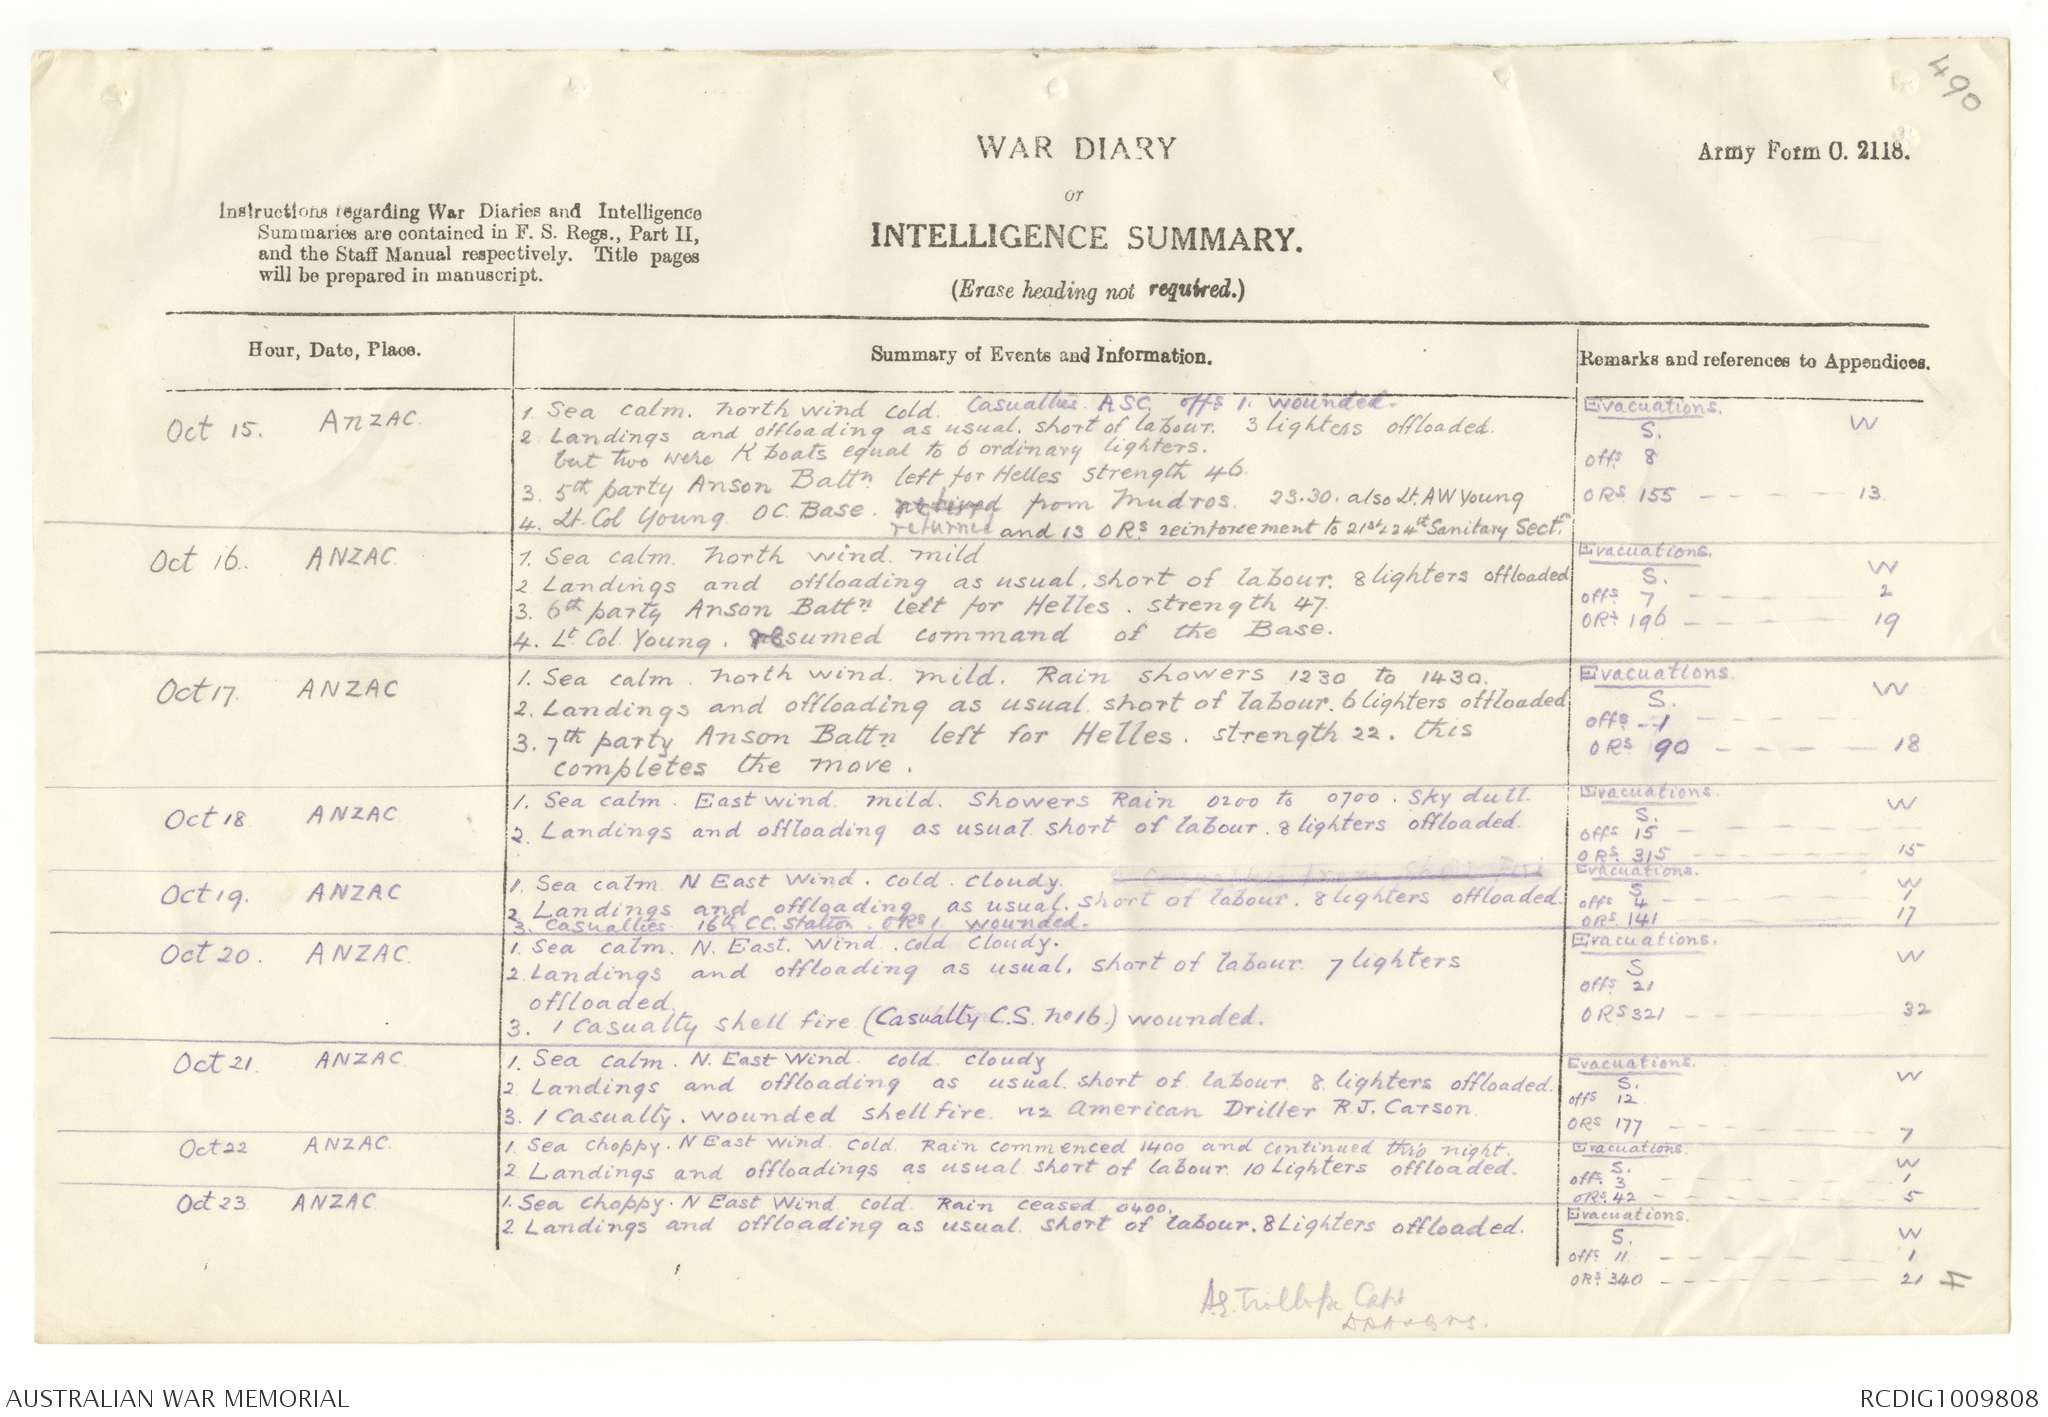 490
WAR DIARY
or
INTELLIGENCE SUMMARY.
(Erase heading not required.)
Army Form C. 2118.
Instructions regarding War Diaries and Intelligence
Summaries are contained in F. S. Regs., Part II,
and the Staff Manual respectively. Title pages
will be prepared in manuscript.
Hour, Date, Place.
Summary of Events and Information.
Remarks and references to Appendices.
Oct 15. ANZAC.
1. Sea calm. North wind cold. Casualties. ASC. offs 1. wounded.
2 Landings and offloading as usual. short of labour. 3 lighters offloaded.
but two were K boats equal to 6 ordinary lighters.
3. 5th party Anson Battn left for Helles strength 46.
4. Lt. Col Young. OC. Base. from Mudros. 23.30. also Lt. AW Young
returned and 13 ORs reinforcement to 21st & 24th Sanitary Sectn
Evacuations.
S. W
offs 8
ORs 155 - - - - 13.
Oct 16. ANZAC.
1. Sea calm. North wind. mild
2 Landings and offloading as usual. short of labour. 8 lighters offloaded
3. 6th party Anson Battn left for Helles. strength 47.
4. Lt Col. Young. resumed command of the Base.
Evacuations.
S. W
offs 7 - - - - 2
ORs 196 - - - - 19
Oct 17. ANZAC
1. Sea calm. North wind. mild. Rain showers 1230 to 1430.
2. Landings and offloading as usual short of labour. 6 lighters offloaded
3. 7th party Anson Battn left for Helles. strength 22. this
completes the move.
Evacuations.
S. W
offs 1 - - - -
ORs 90 - - - - 18
Oct 18. ANZAC.
1. Sea calm. East wind. mild. Showers Rain 0200 to 0700. Sky dull.
2. Landings and offloading as usual short of labour. 8 lighters offloaded.
Evacuations.
S. W
offs 15 - - - -
ORs. 315 - - - - 15
Oct 19. ANZAC
1. Sea calm N East Wind. cold. cloudy.
2. Landings and offloading as usual. short of labour. 8 lighters offloaded.
3. Casualties. 16th C.C. Station. ORs 1. wounded.
Evacuations.
S W
offs 4 - - - - 1
ORs. 141 - - - - 17
Oct 20. ANZAC.
1. Sea calm. N. East. Wind. cold cloudy.
2. Landings and offloading as usual. short of labour. 7 lighters
offloaded.
3. 1 Casualty shell fire (Casualty C.S. No 16.) wounded.
Evacuations.
S W
offs 21
ORs 321 - - - - 32
Oct 21. ANZAC.
1. Sea calm. N. East Wind. cold. cloudy
2. Landings and offloading as usual. short of labour. 8 lighters offloaded.
3. 1 Casualty. wounded shell fire. N2 American Driller R.J. Carson.
Evacuations.
S. W
offs 12
ORs 177 - - - - 7
Oct 22 ANZAC.
1. Sea choppy. N East Wind. cold. Rain commenced 1400 and continued thro night.
2. Landings and offloadings as usual. short of labour. 10 Lighters offloaded.
Evacuations.
S. W
off. 3 - - - - 1
ORs. 42 - - - - 5
Oct 23. ANZAC.
1. Sea choppy. N East Wind cold. Rain ceased 0400.
2. Landings and offloading as usual. short of labour. 8 Lighters offloaded.
Evacuations.
S. W
offs 11 - - - - 1
ORs. 340 - - - - 21
Trollope Capt
AUSTRALIAN WAR MEMORIAL
RCDIG1009808